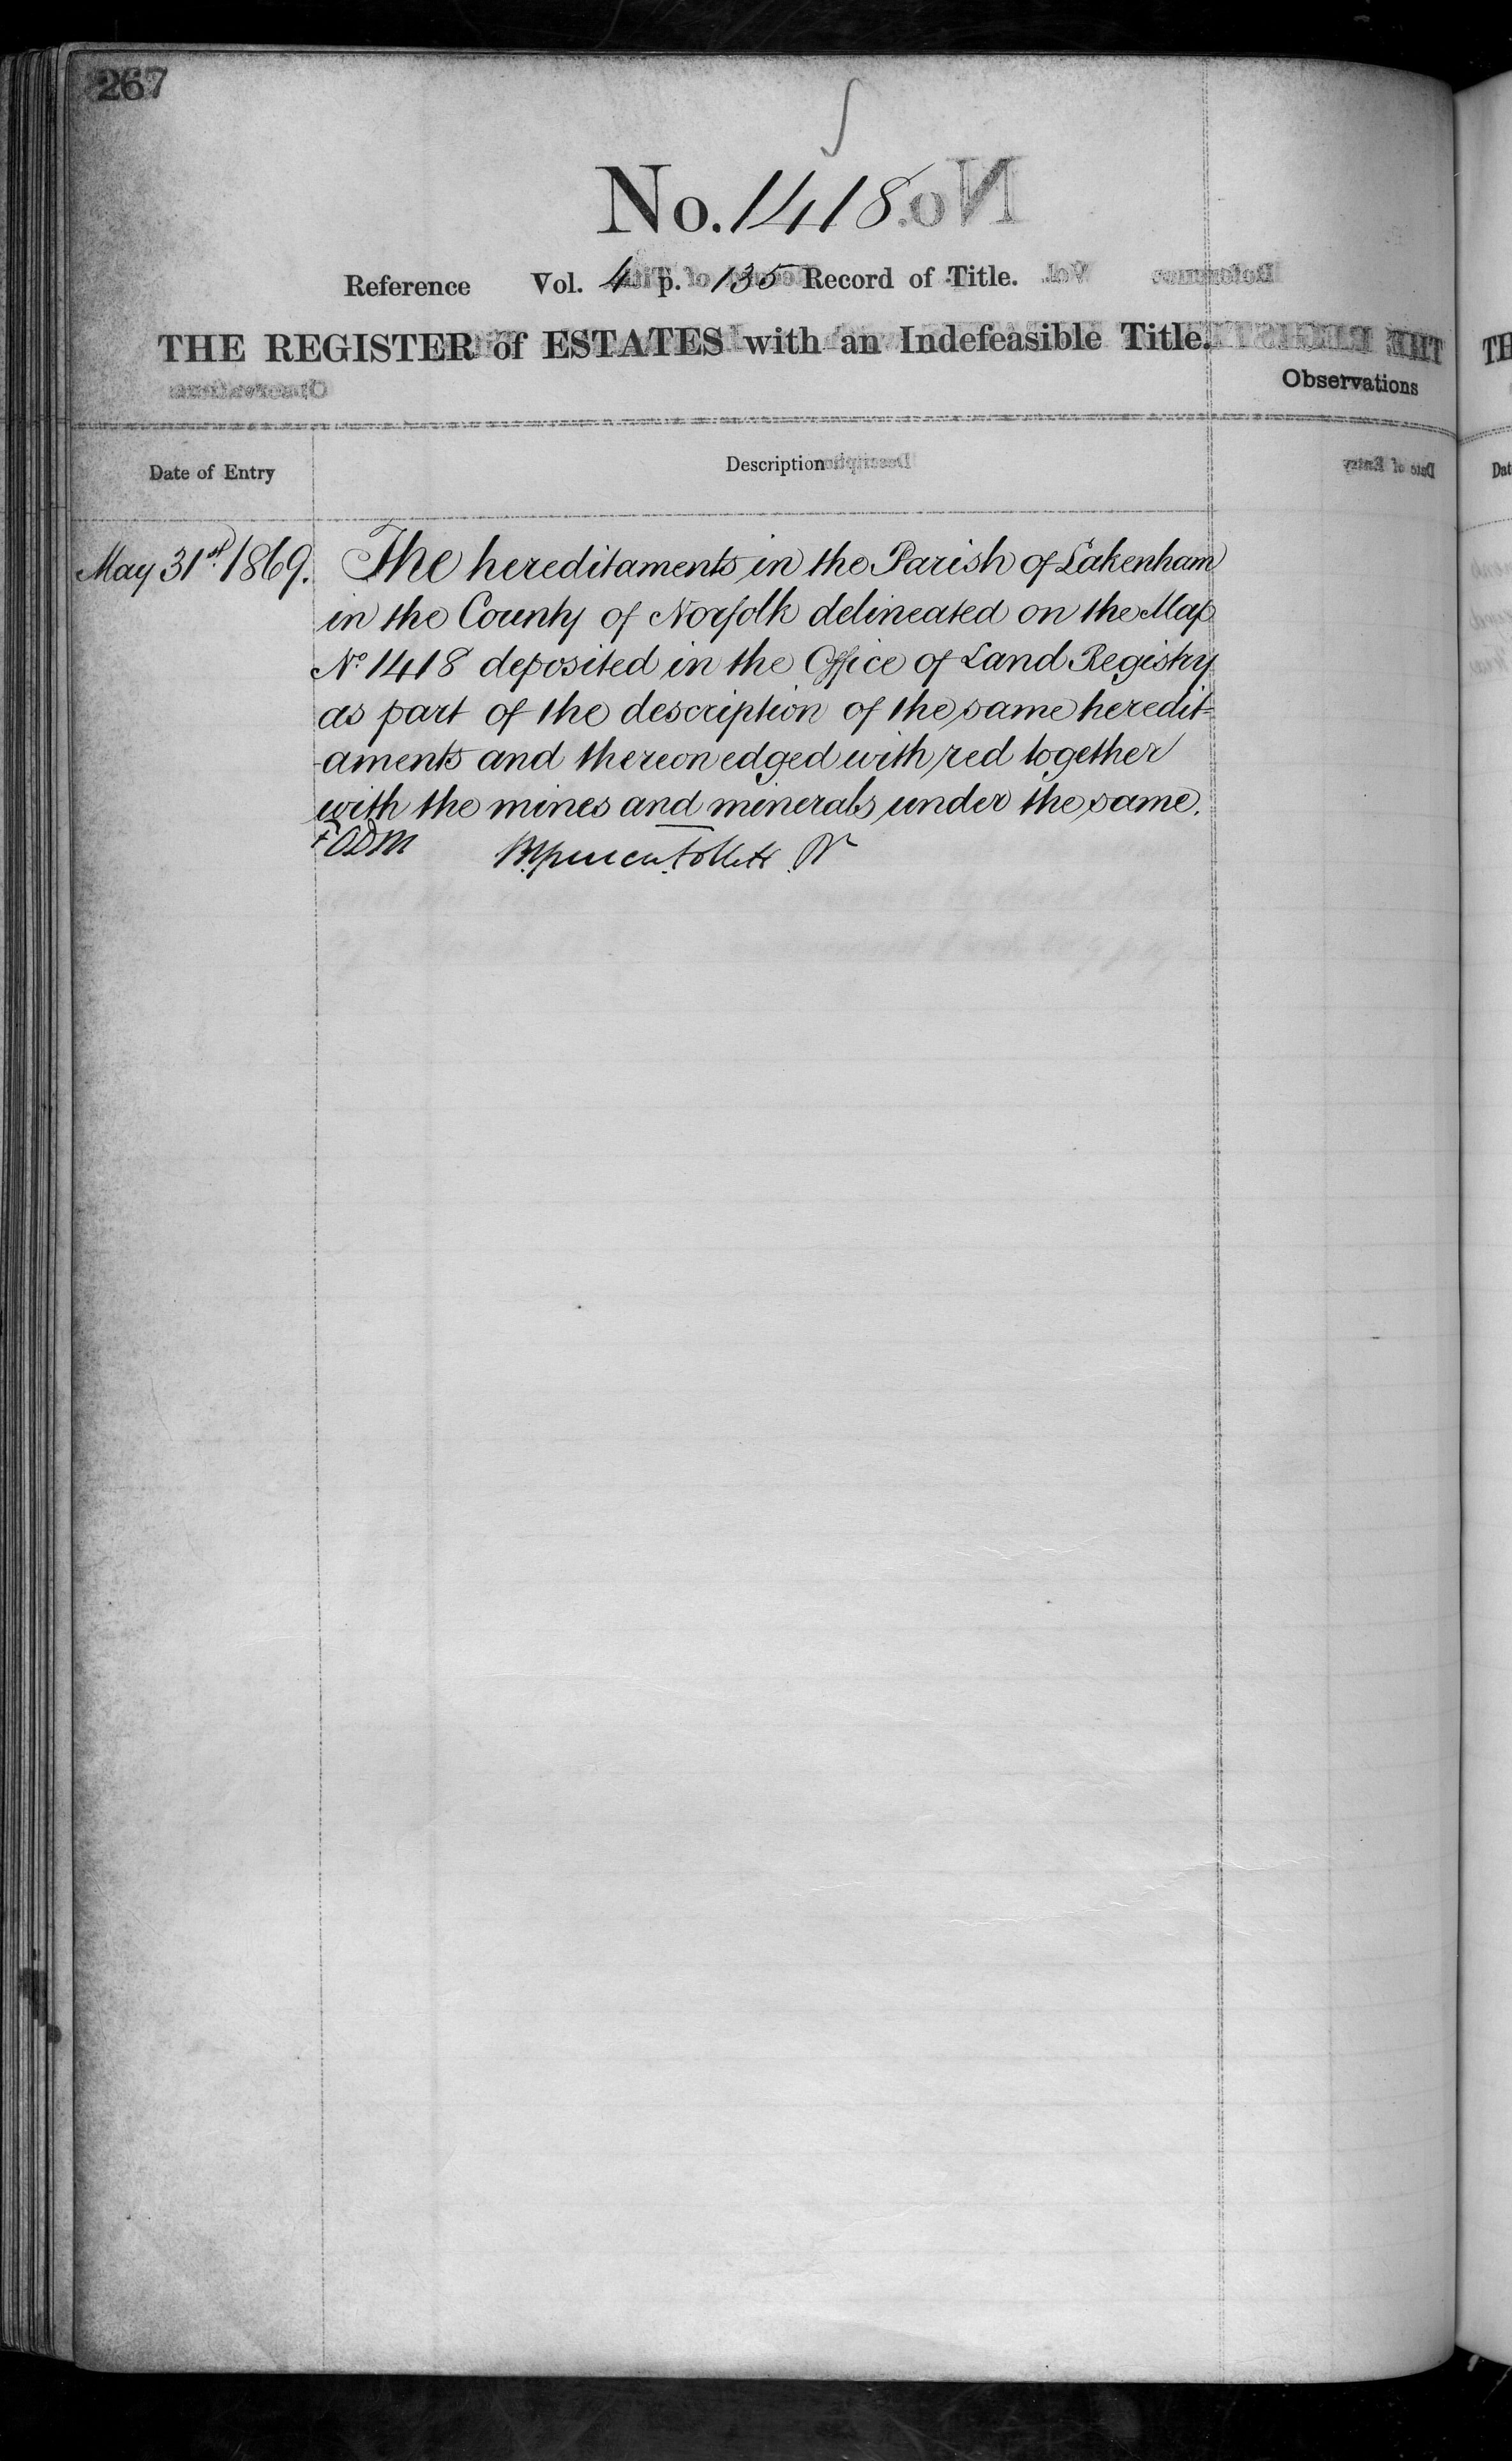 267
No. 1418
Reference Vol. 4 p. 135 Record of Title.
THE REGISTER of ESTATES with an Indefeasible Title.
Observations
Date of Entry
Description
May 31st. 1869.
The hereditaments in the Parish of Lakenham
in the County of Norfolk delineated on the Map
No 1418 deposited in the Office of Land Registry
as part of the description of the same heredit-
-aments and thereon edged with red together
with the mines and minerals under the same.
Follett